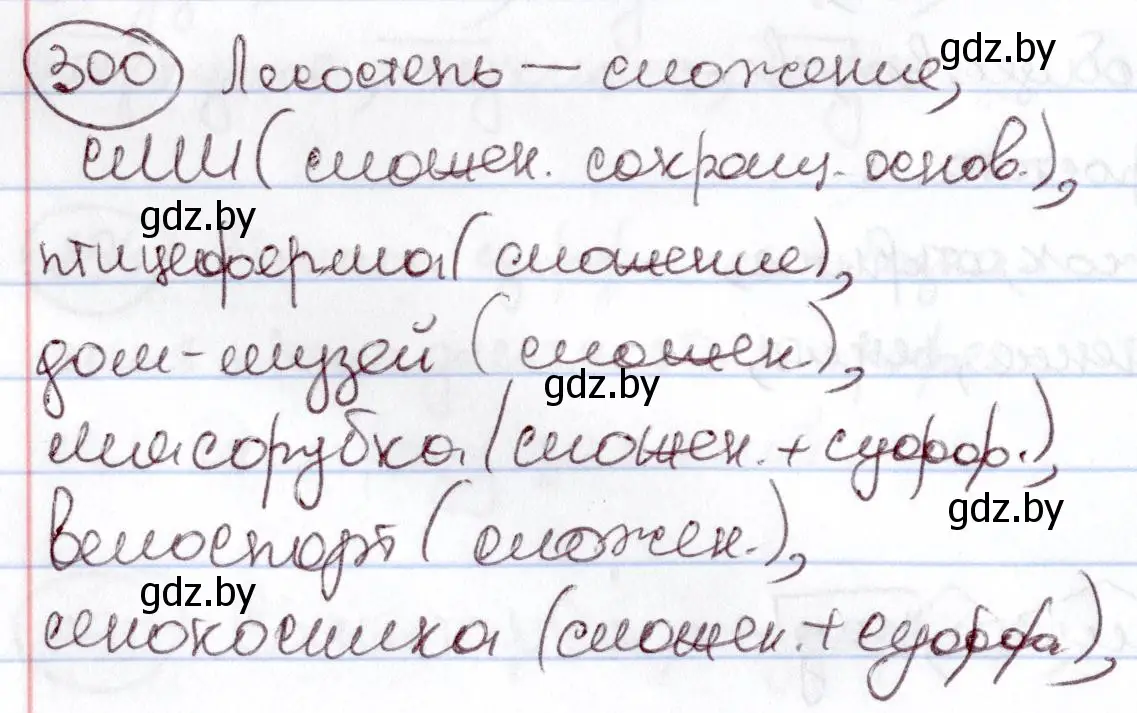 300 Лесостепь — сложение,
gdz.by
СМИ (сложен. сокращ. основ.),
gdz.by
птицеферма (сложение),
дом-музей (сложен),
gdz.by
мясорубка (сложен. + суфф.),
gdz.by
велоспорт (сложен.),
gdz.by
(сложен. + суффа),